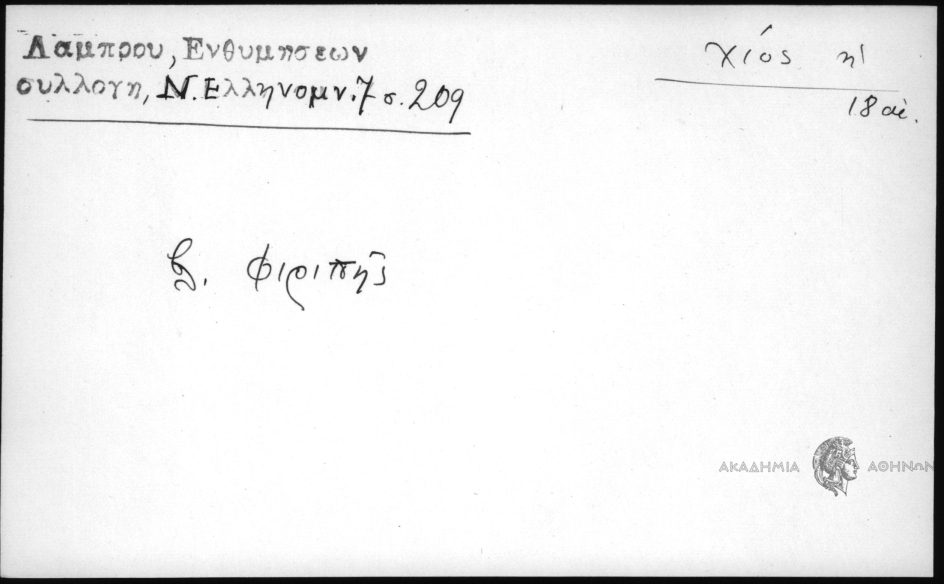 Λαμπρου, Ενθυμησεων
συλλογη, Ν. Ελληνομν. 7 σ. 209
χίος
18 αἰ.
Φιριπῆς
ΑΚΑΔΗΜΙΑ ΑΘΗΝΩΝ